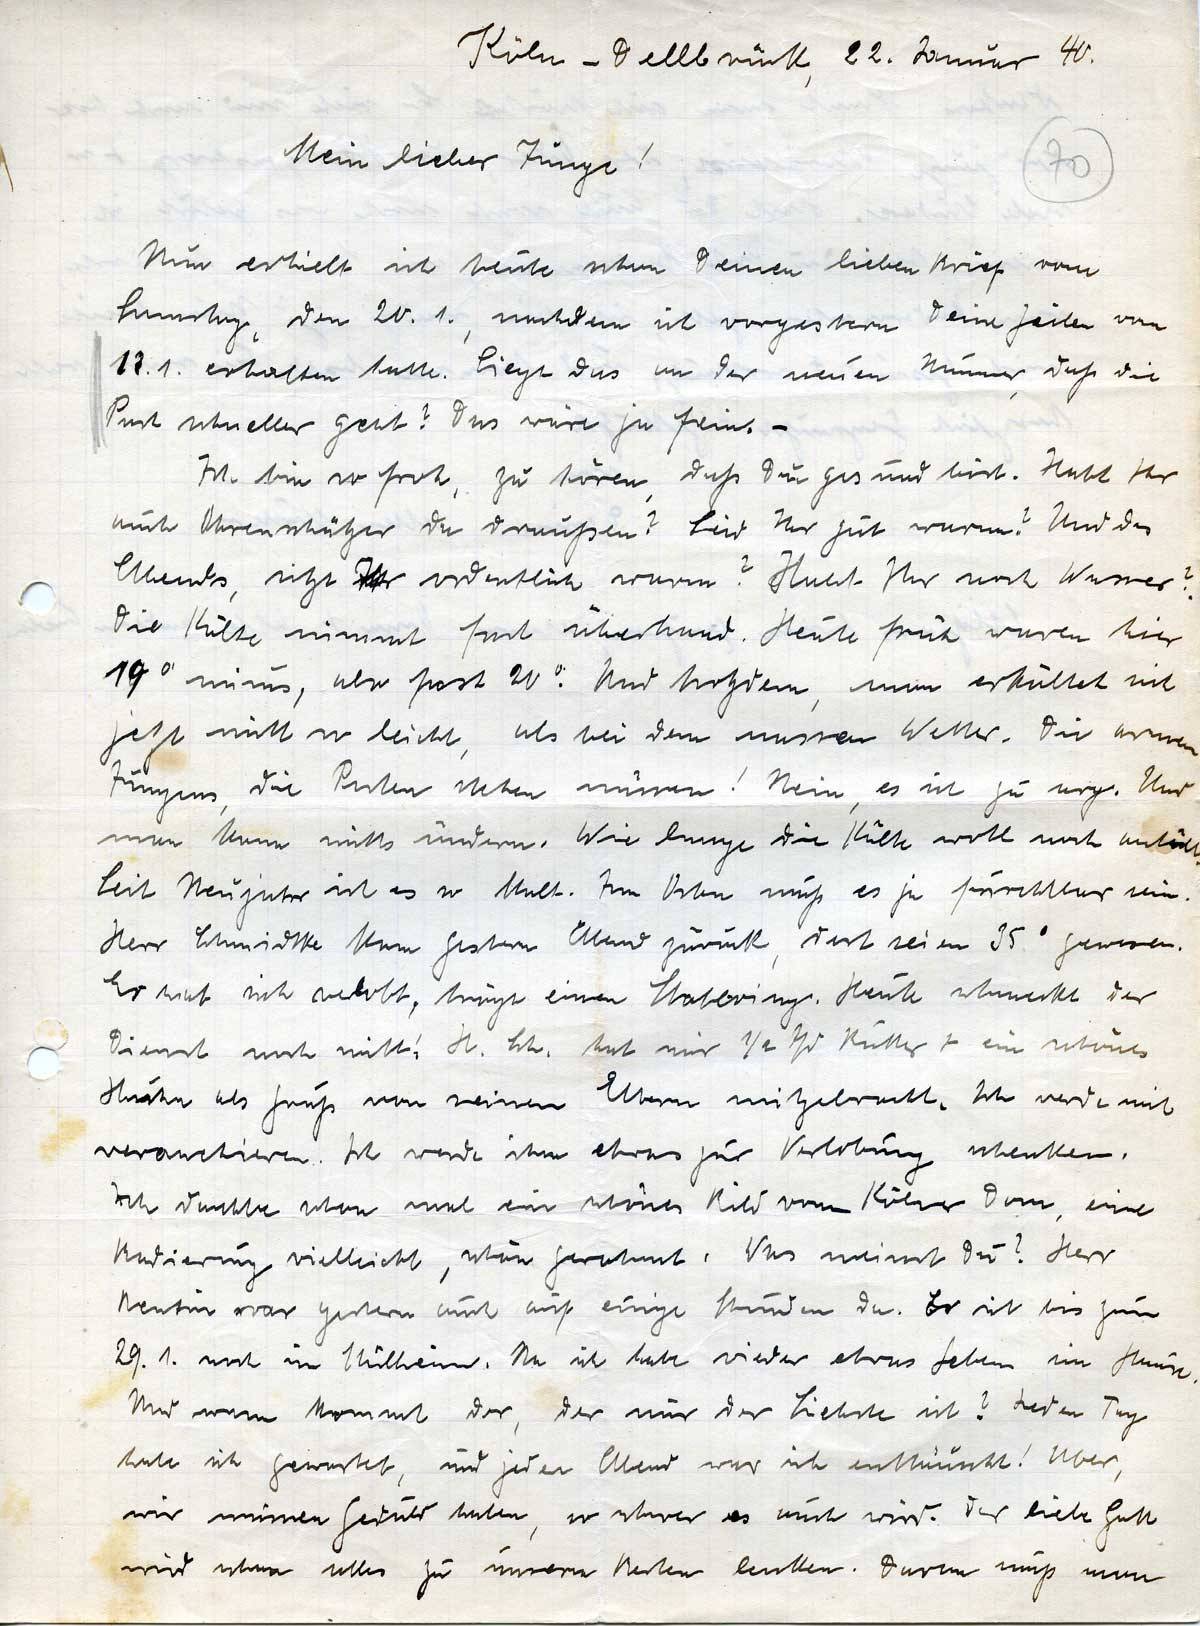 Köln-Dellbrück, 22. Januar 40.
Mein lieber Junge!
70
Nun erhielt ich heute schon Deinen lieben Brief vom
Samstag, den 20. 1., nachdem ich vorgestern Deine Zeilen vom
17. 1. erhalten hatte. Liegt das an der neuen Nummer, daß die
Post schneller geht? Das wäre ja fein. –
Ich bin so froh, zu hören, daß Du gesund bist. Habt Ihr
auch Ohrenschützer da draußen? Seid Ihr gut warm? Und des
Abends, sitzt Ihr ordentlich warm? Habt Ihr noch Wasser?
Die Kälte nimmt fast überhand. Heute früh waren hier
19° minus, also fast 20°. Und trotzdem, man erkältet sich
jetzt nicht so leicht, als bei dem nassen Wetter. Die armen
Jungens, die Posten stehen müssen! Nein, es ist zu arg. Und
man kann nichts ändern. Wie lange die Kälte wohl noch anhält.
Seit Neujahr ist es so kalt. Im Osten muß es ja furchtbar sein.
Herr Schmidtke kam gestern Abend zurück, dort seien 35° gewesen.
Er hat sich verlobt, trägt einen Ring. Heute schmeckt der
Dienst noch nicht! H. Sch. hat mir 1/2 Pfd Butter + ein schönes
Huhn als Gruß von seinen Eltern mitgebracht. Ich werde mich
revanchieren. Ich werde ihm etwas zur Verlobung schenken.
Ich dachte schon mal ein schönes Bild vom Kölner Dom, eine
Radierung vielleicht, schön gerahmt. Was meinst Du? Herr
war gestern auch auf einige Stunden da. Er ist bis zum
29. 1. noch in Mülheim. Na ich habe wieder etwas Leben im Hause.
Und wann kommt der, der mir der Liebste ist? Jeden Tag
habe ich gewartet, und jeden Abend war ich enttäuscht! Aber,
wir müssen Geduld haben, so schwer es auch wird. Der liebe Gott
wird schon alles zu unserm Besten lenken. Daran muß man